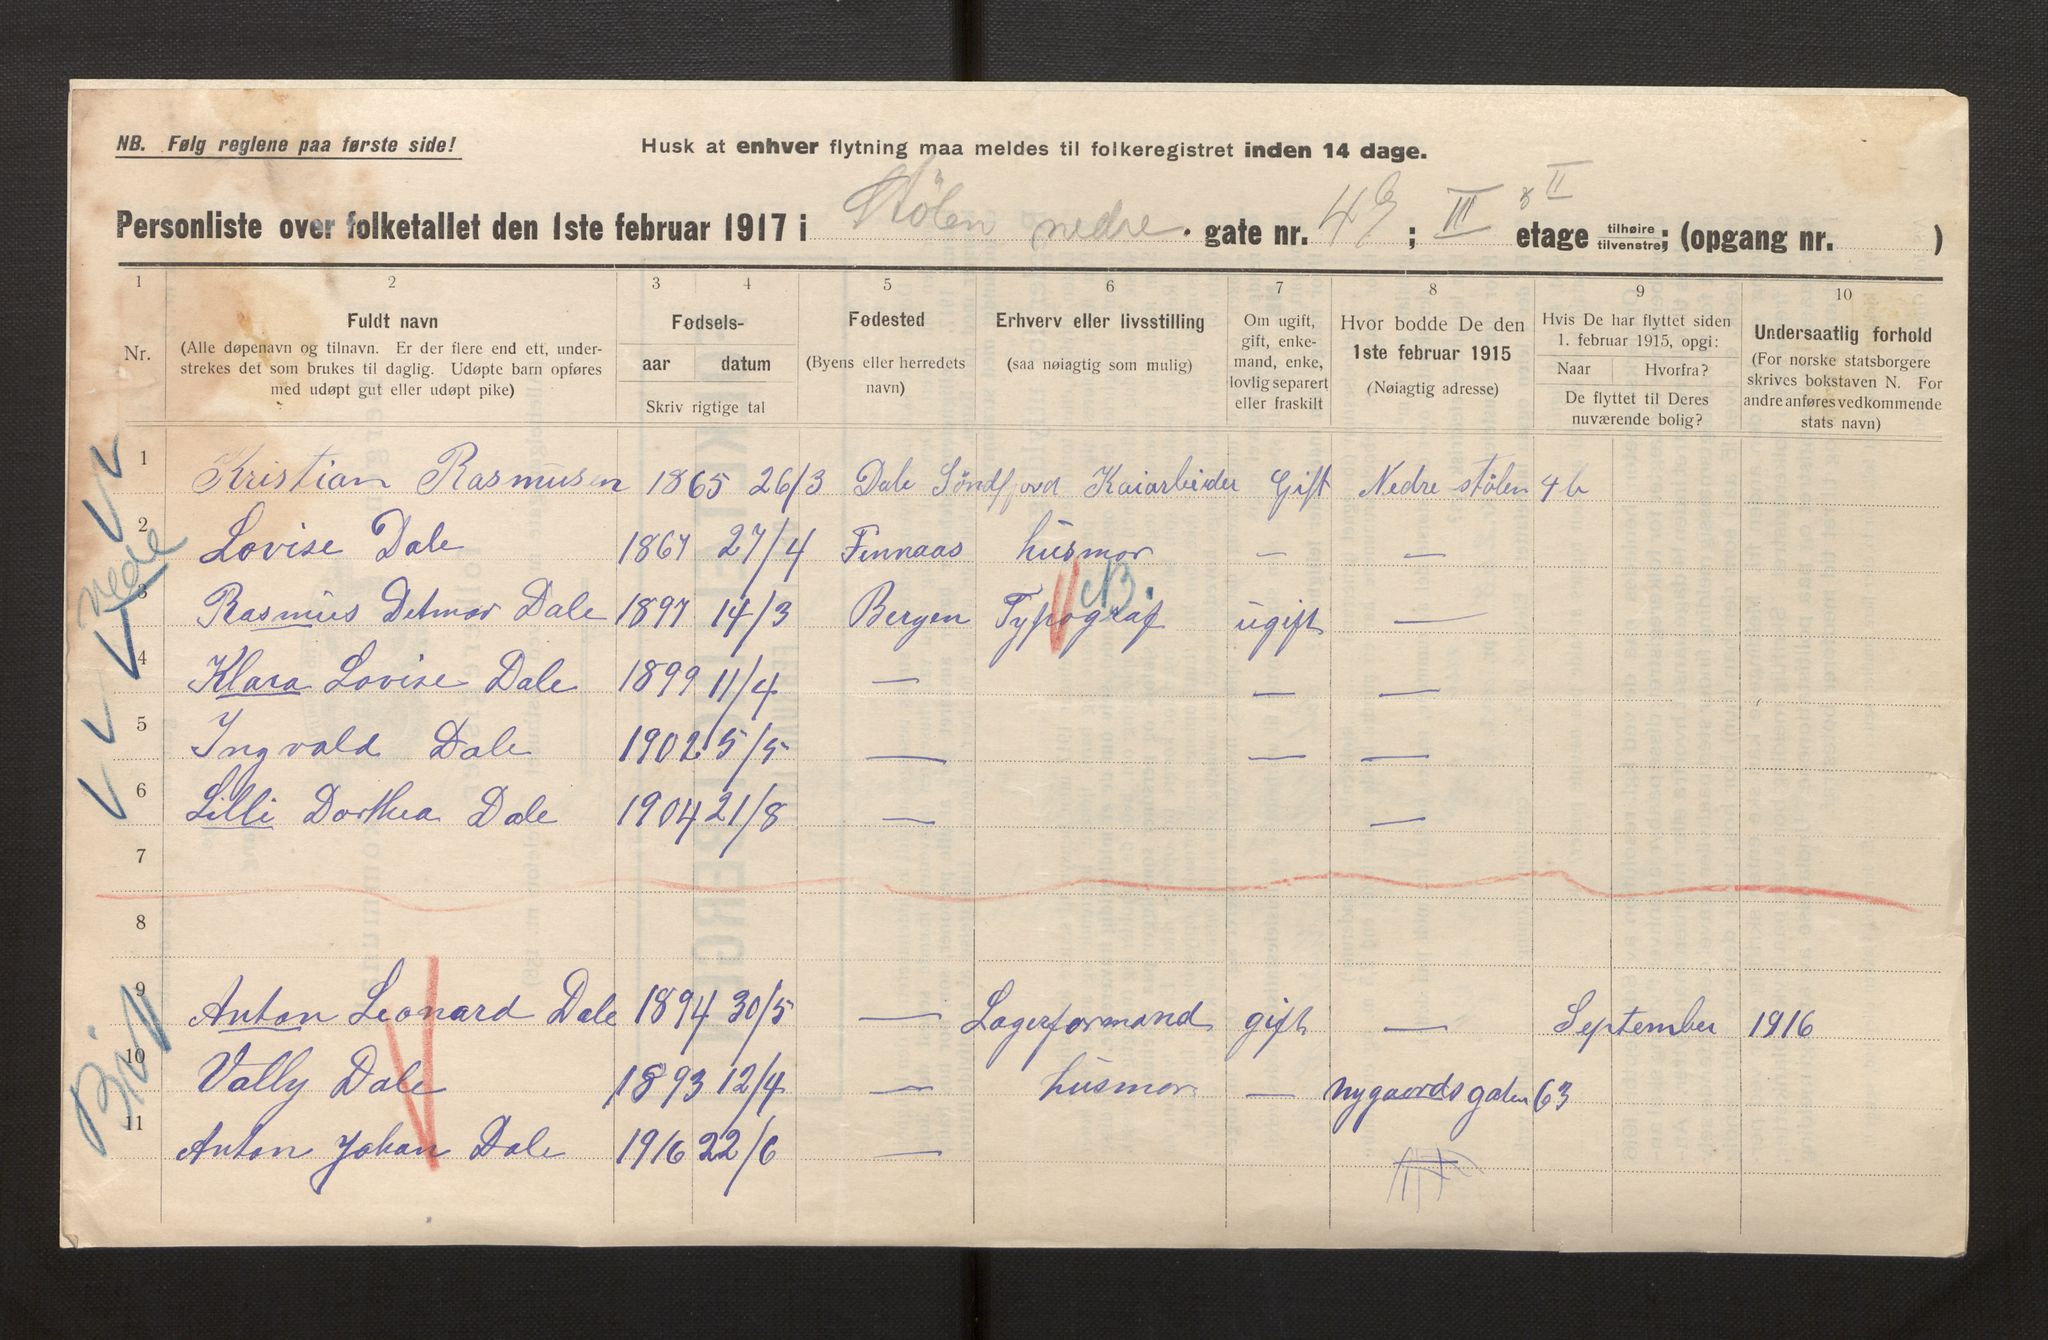 NB. Følg reglene paa første side!
Husk at enhver flytning maa meldes til folkeregistret inden 14 dage.
Personliste over folketallet den 1ste februar 1917 i Stölen nedre. gate nr. ; III 8 II etage tilhøire tilvenstre; (opgang nr. )
1 2 3 4 5 6 7 8 9 10
Nr.
Fuldt navn
(Alle døpenavn og tilnavn. Er der flere end ett, under-
strekes det som brukes til daglig. Udøpte barn opføres
med udøpt gut eller udøpt pike)
Fødsels-
aar datum
Skriv rigtige tal
Fødested
(Byens eller herredets
navn)
Erhverv eller livsstilling
(saa nøiagtig som mulig)
Om ugift,
gift, enke-
mand, enke,
lovlig separert
eller fraskilt
Hvor bodde De den
1ste februar 1915
(Nøiagtig adresse)
Hvis De har flyttet siden
1. februar 1915, opgi:
Naar Hvorfra?
De flyttet til Deres
nuværende bolig?
Undersaatlig forhold
(For norske statsborgere
skrives bokstaven N. For
andre anføres vedkommende
stats navn)
1 Kristian Rasmusen 1865 26/3 Dale Söndfjord Kaiarbeider Gift Nedre stölen 4 b
2 Lovise Dale 1867 27/4 Finnaas husmor — —
nede
3 Rasmus Detmar Dale 1897 14/3 Bergen Typograf NB. ugift —
4 Klara Lovise Dale 1899 11/4 — — —
5 Ingvald Dale 1902 5/5 — — —
6 Lilli Dorthea Dale 1904 21/8 — —
7
8
9 Anton Leonard Dale 1894 30/5 — Lagerformand gift — September 1916
10 Vally Dale 1893 12/4 — husmor — nygaardsgaten 63
11 Anton Johan Dale 1916 22/6 —